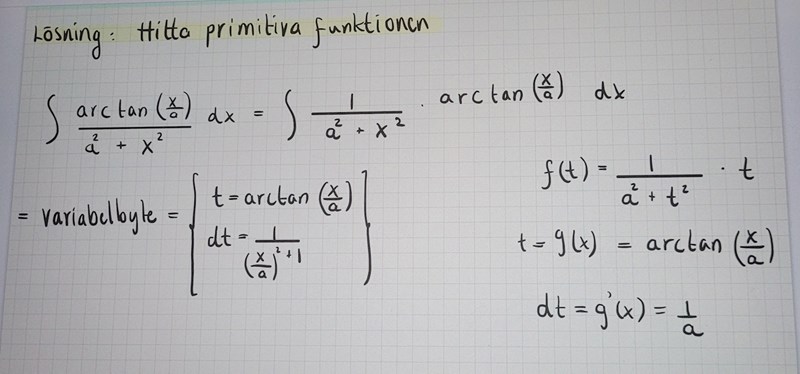 Lösning: Hitta primitiva funktionen
∫ arctan(x/a) / (a² + x²) dx = ∫ 1 / (a² + x²) · arctan(x/a) dx
= variabelbyte = [ t = arctan(x/a)
dt = 1 / ((x/a)² + 1) ]
f(t) = 1 / (a² + t²) · t
t = g(x) = arctan(x/a)
dt = g'(x) = 1/a